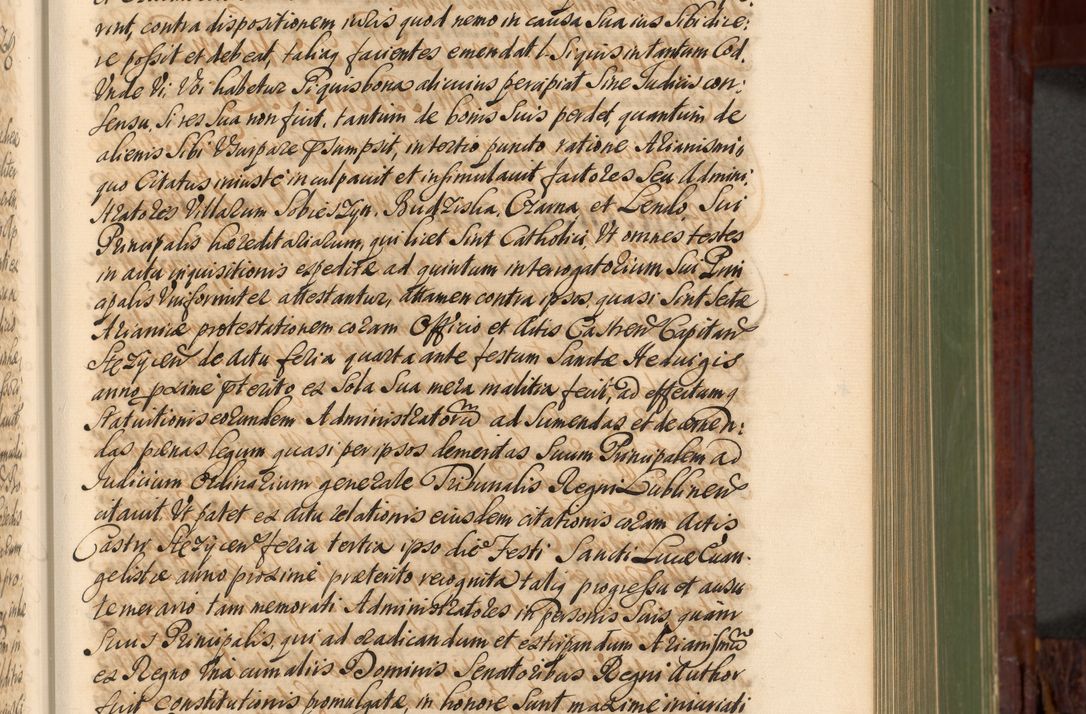 rint, contra dispositionem iuris quod nemo in causa sua ius sibi dice:
re possit et debeat, taliaq facientes emendat l. Siquis in tantum Cod.
Unde Vi: Vbi habetur Si quis bona alicuius peruipiat Sine Iudicis con:
sensu, Si res sua non fuit, tantum de bonis suis perdet, quantum de
alienis Sibi Vsurpare psumpsit, in tertio puncto ratione Arianismi,
quo Citatus iniuste inculpauit et insimulauit factores Seu Admini:
stratores Villarum Sobieszyn, Budziska, Czarna et Lendo Sui
Principalis haereditariarum, qui licet Sint Catholici, Vt omnes testes
in actu inquisitionis expeditae ad quintum interrogatorium Sui Prin
cipalis Vniformiter attestantur, attamen contra ipsos quasi Sint Sectae
Arianicae protestationem coram Officio et Actis Castren Capitan
Stęzycen de actu feria quarta ante festum Sanctae Heduigis
anno proxime pterito ex Sola Sua mera malitia fecit, ad effectumq
Statuitionis eorundem Administratorum ad Sumendas et decernen:
das paenas legum quasi per ipsos demeritas Suum Principalem ad
Iudicium Ordinarium generale Tribunalis Regni Lublinen
citauit Vt patet ex actu relationis eiusdem citationis coram Actis
Castri Stęzycen feria tertia ipso die Festi Sancti Lucae Euan-
gelistae anno proxime praeterito recognita taliq progressu et ausu
temerario tam memorati Administratores in personis Suis, quam
Suus Principalis, qui ad eradicandum et extirpandum Arianismum
ex Regno Vna cum aliis Dominis Senatoribus Regni Author
fuit constitutionis promulgatae, in honore Sunt maxime iniuriati